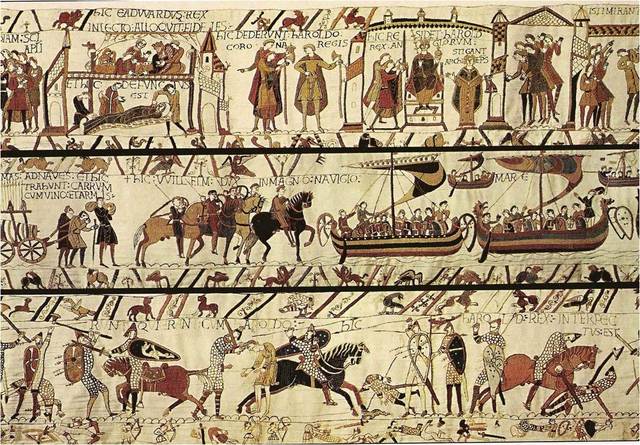 HIC EADWARDVS:REX
IN LECTO:ALLOQVIT:FIDELES:
ET hIC DEFVNCTVS
EST
hIC DEDERVNT:hAROLDO:
CORONA REGIS
hIC RE SIDET:hAROLD
REX:AN GLORVM:
STIGANT
ARChIEPS
ISTI MIRANT
AD NAVES: ET hIC
TRAhVNT: CARRVM
CVM VINO:ET ARMIS:
†hIC:VVILLELM: DVX IN MAGNO: NAVIGIO:
MARE
RVNT QVI ERANT CVM hAROLDO: hIC
hAROLD:REX:INTERFEC
TVS:EST